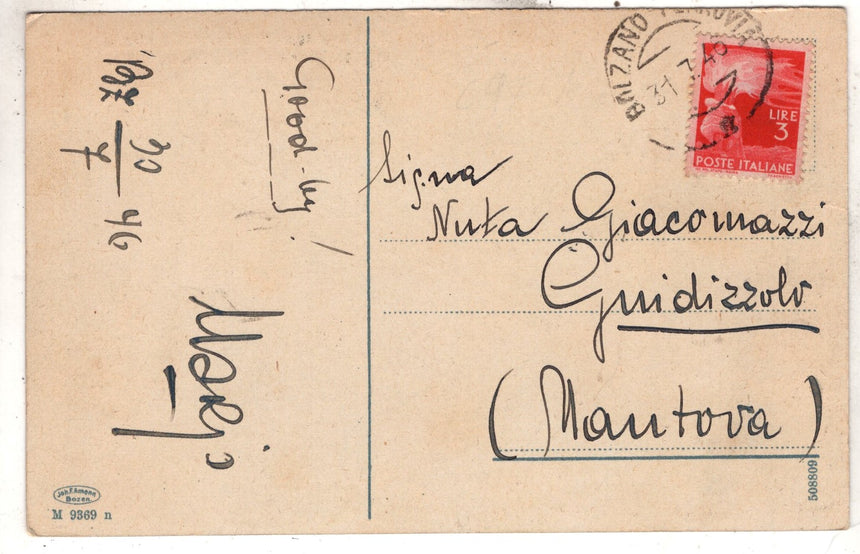 Bz 30/7 46
Good-by!
Mario
BOLZANO FERROVIA
31.7.46
LIRE
3
POSTE ITALIANE
Sig.na
Nuta Giacomazzi
Guidizzolo
(Mantova)
Joh.F.Amonn
Bozen
M 9369 n
508809